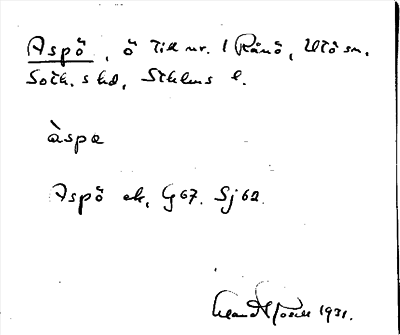 Aspö, ö till nr. 1 Rånö, Utö sn.
Soth. s hd, Sthlms l.
àspa
Aspö ek, G 67. Sj 62.
1931.